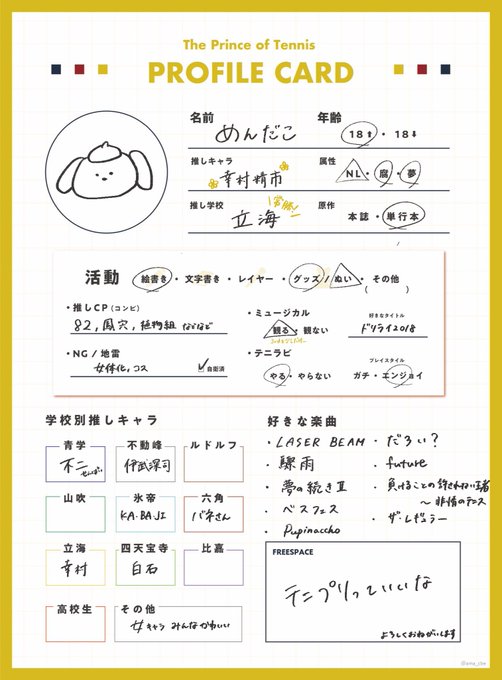 The Prince of Tennis
PROFILE CARD
名前 めんだこ 年齢 18↑・18↓
推しキャラ 幸村精市 属性 NL・腐・夢
推し学校 立海 常勝! 原作 本誌・単行本
活動 絵書き・文字書き・レイヤー・グッズ/ぬい・その他( )
・推しCP(コンビ)
82,鳳宍,植物組などなど
・NG/地雷
女体化,コス 自衛済
・ミュージカル
観る・観ない
・テニラビ
やる・やらない
好きなタイトル
ドリライ2018
プレイスタイル
ガチ・エンジョイ
学校別推しキャラ
青学 不二せんぱい
不動峰 伊武深司
ルドルフ
山吹
氷帝 KA・BA・JI
六角 バネさん
立海 幸村
四天宝寺 白石
比嘉
高校生
その他 女キャラ みんなかわいい
好きな楽曲
・LASER BEAM
・驟雨
・夢の続きⅡ
・ベスフェス
・Pupinaccho
・だろぃ?
・future
・負けることの許されない王者
〜非情のテニス
・ザ・レギュラー
FREESPACE
テニプリっていいな
よろしくおねがいします